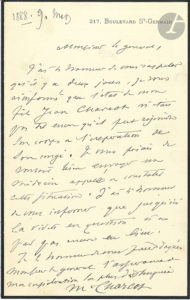 1888 - 9 mars
217, BOULEVARD St-GERMAIN
Monsieur le général,
J'ai l'honneur de vous rappeler
qu'il y a deux jours, je vous
informé que l'état de mon
fils Jean Charcot
qu'il peut rejoindre
son corps à l'expiration de
son congé. Je vous priais de
vouloir bien envoyer un
médecin constater
cette situation. J'ai l'honneur
de vous informer que jusqu'ici
la visite en question n'a
pas encore eu lieu.
J'ai l'honneur
Monsieur le général
ma considération la plus distinguée
Charcot